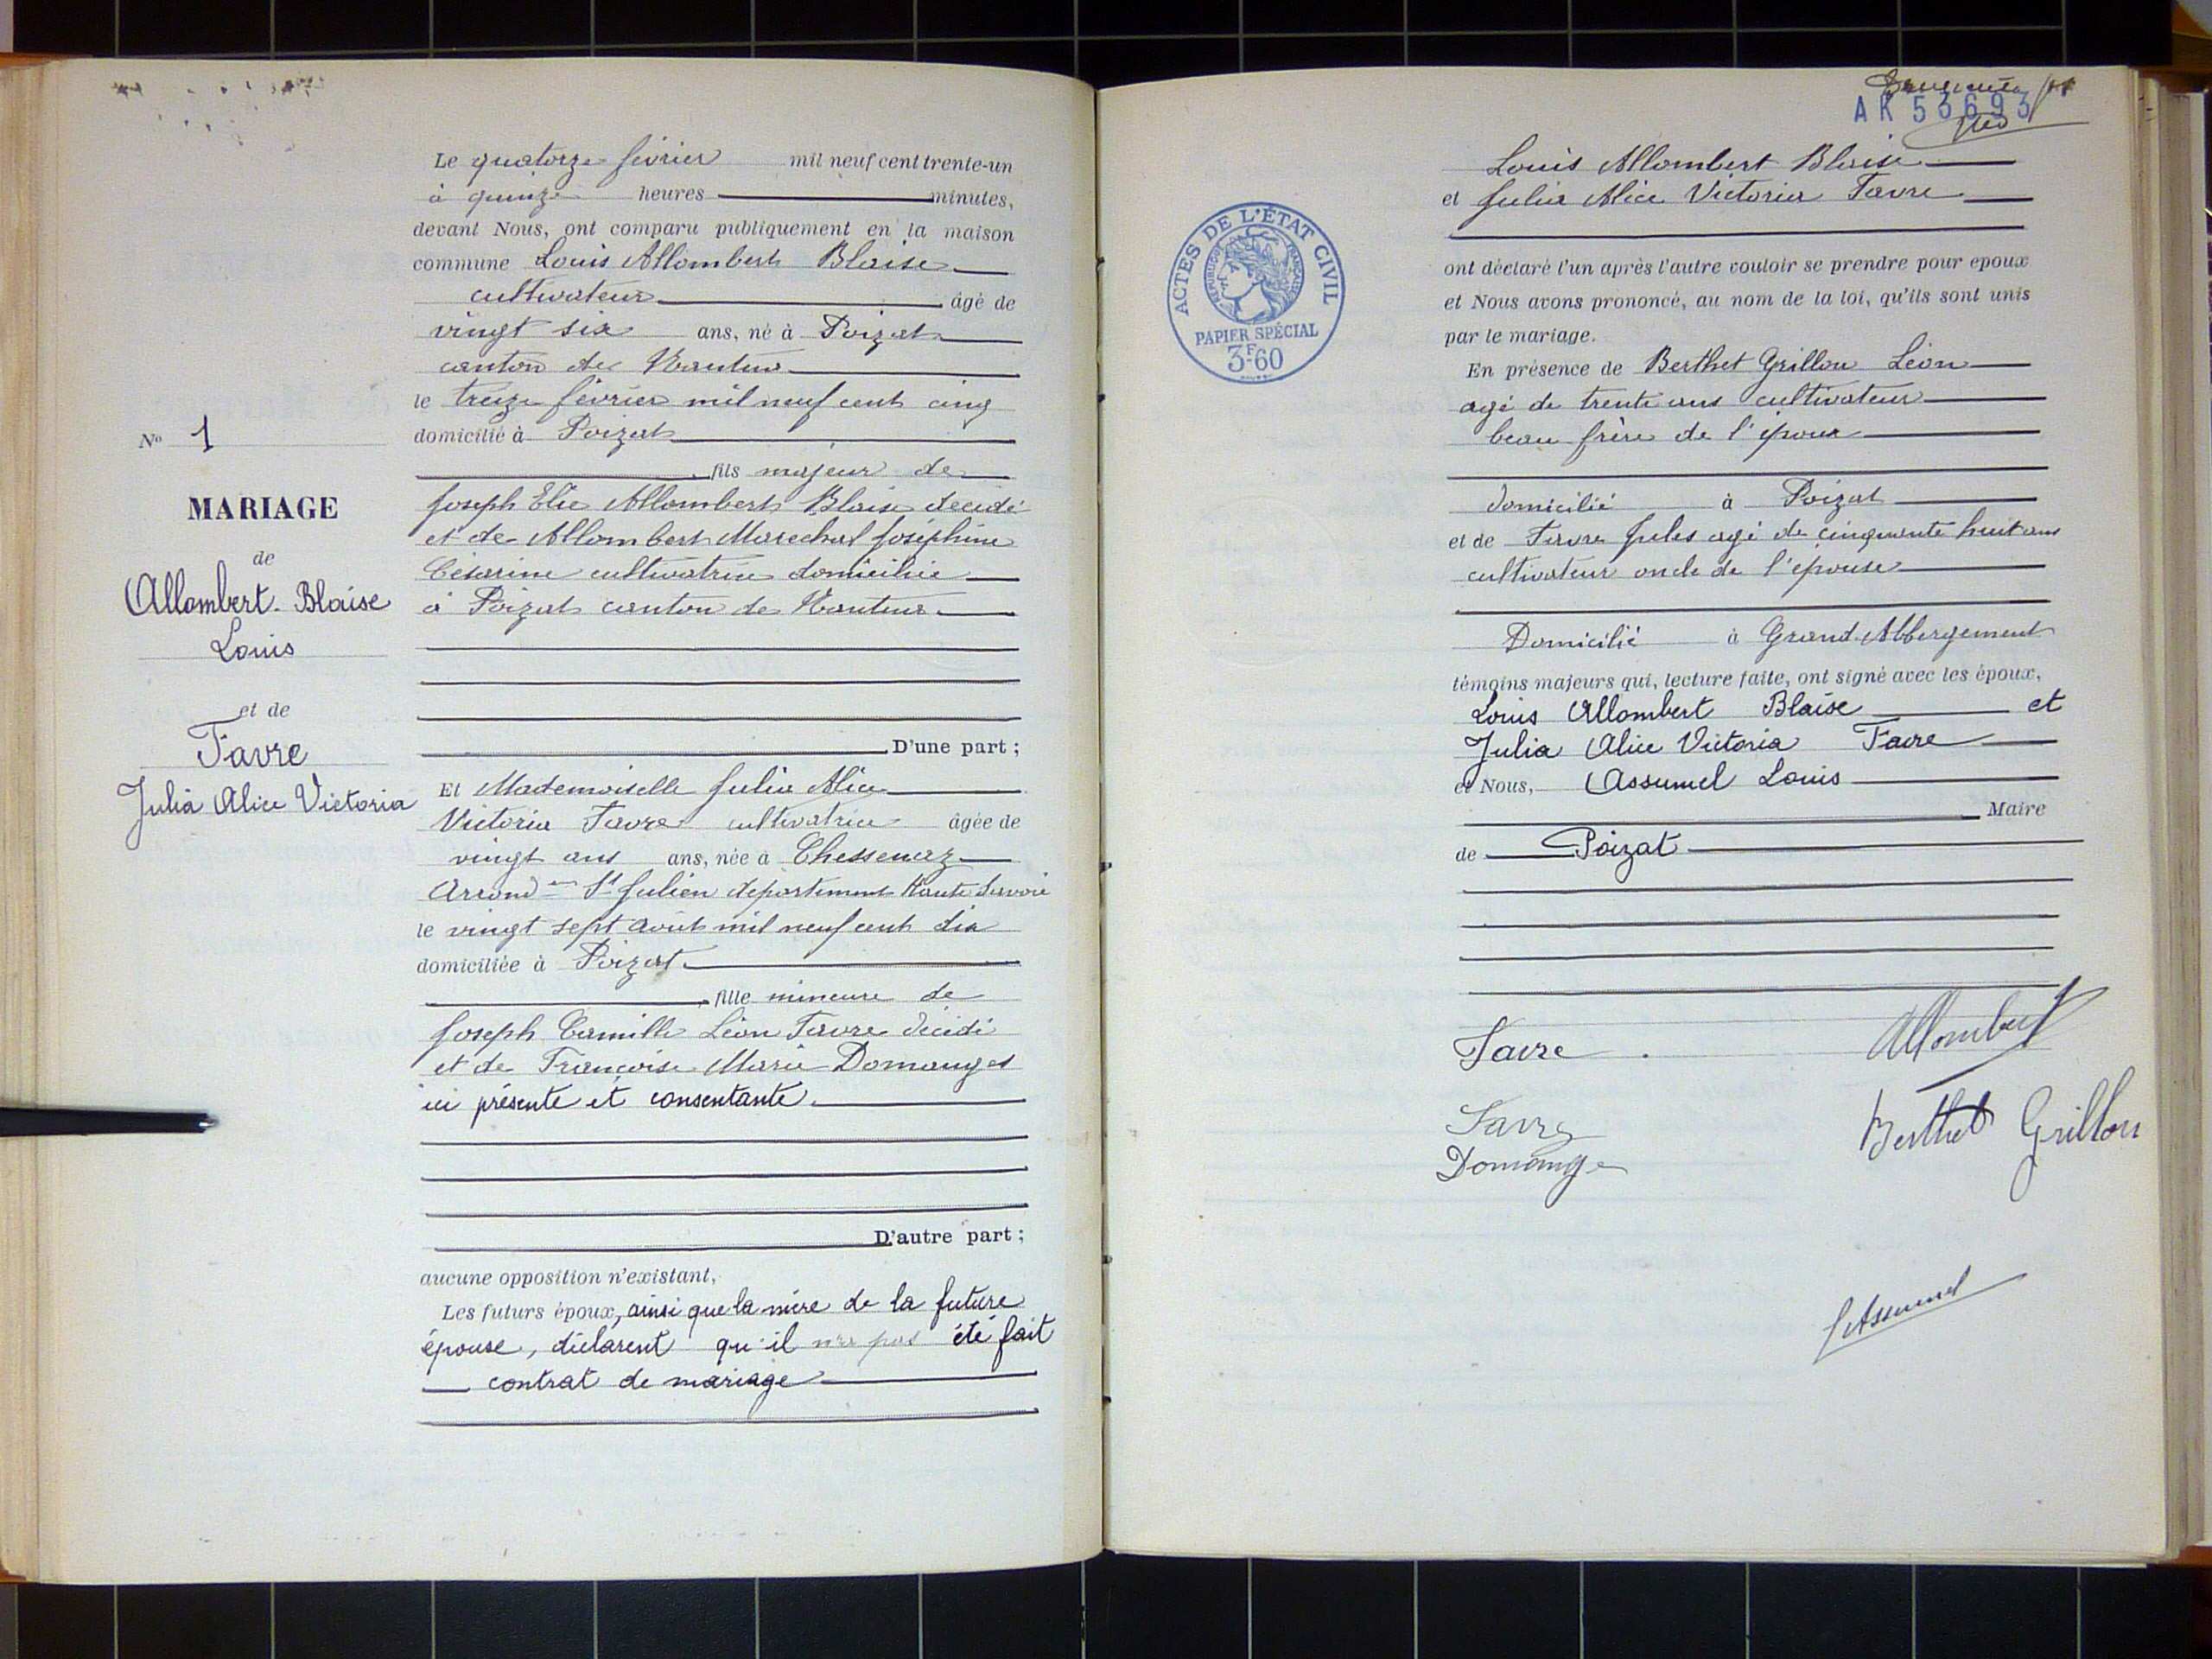 N° 1
MARIAGE
de
Allombert-Blaise
Louis
et de
Favre
Julia Alice Victoria
Le quatorze février mil neuf cent trente-un
à quinze heures minutes,
devant Nous, ont comparu publiquement en la maison
commune Louis Allombert Blaise
cultivateur âgé de
vingt six ans, né à Poizat
canton de Nantua
le treize février mil neuf cent cinq
domicilié à Poizat
fils majeur de
Joseph Elie Allombert Blaise décédé
et de Allombert Marechal Joséphine
Césarine cultivatrice domiciliée
à Poizat canton de Nantua
D'une part ;
Et Mademoiselle Julia Alice
Victoria Favre cultivatrice âgée de
vingt ans ans, née à Chessenaz
Arrond em St Julien département Haute Savoie
le vingt sept août mil neuf cent dix
domiciliée à Poizat
fille mineure de
Joseph Camille Léon Favre décédé
et de Françoise Marie Domanges
ici présente et consentante.
D'autre part ;
aucune opposition n'existant,
Les futurs époux, ainsi que la mère de la future
épouse, déclarent qu'il n'a pas été fait
contrat de mariage
AK 53693
Louis Allombert Blaise
et Julia Alice Victoria Favre
ACTES DE L'ÉTAT CIVIL
RÉPUBLIQUE FRANÇAISE
PAPIER SPÉCIAL
3F60
ont déclaré l'un après l'autre vouloir se prendre pour epoux
et Nous avons prononcé, au nom de la loi, qu'ils sont unis
par le mariage.
En présence de Berthet Grillon Léon
agé de trente ans cultivateur
beau frère de l'époux
domicilié à Poizat
et de Favre Jules agé de cinquante huit ans
cultivateur oncle de l'épouse
Domicilié à Grand Abbergement
témoins majeurs qui, lecture faite, ont signé avec les époux,
Louis Allombert Blaise et
Julia Alice Victoria Favre
et Nous, Assumel Louis
Maire
de Poizat
Favre Allombert
Favre Berthet Grillon
Domange
L Assumel